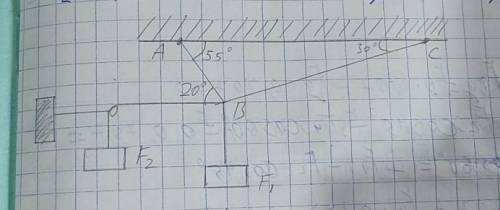 A 55° 30° C
20° B
F₂
F₁